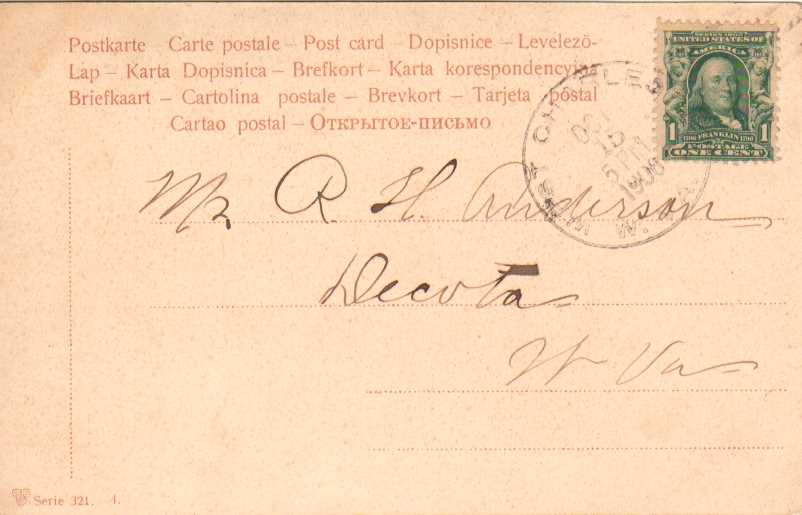 Postkarte – Carte postale – Post card – Dopisnice – Levelező-
Lap – Karta Dopisnica – Brefkort – Karta korespondencyjna
Briefkaart – Cartolina postale – Brevkort – Tarjeta postal
Cartao postal – Открытое-письмо
SERIES 1902
UNITED STATES OF
AMERICA
1 FRANKLIN 1
POSTAGE
ONE CENT
1906
W.
Mr R. H. Anderson
Decota
W Va
Serie 321. 4.